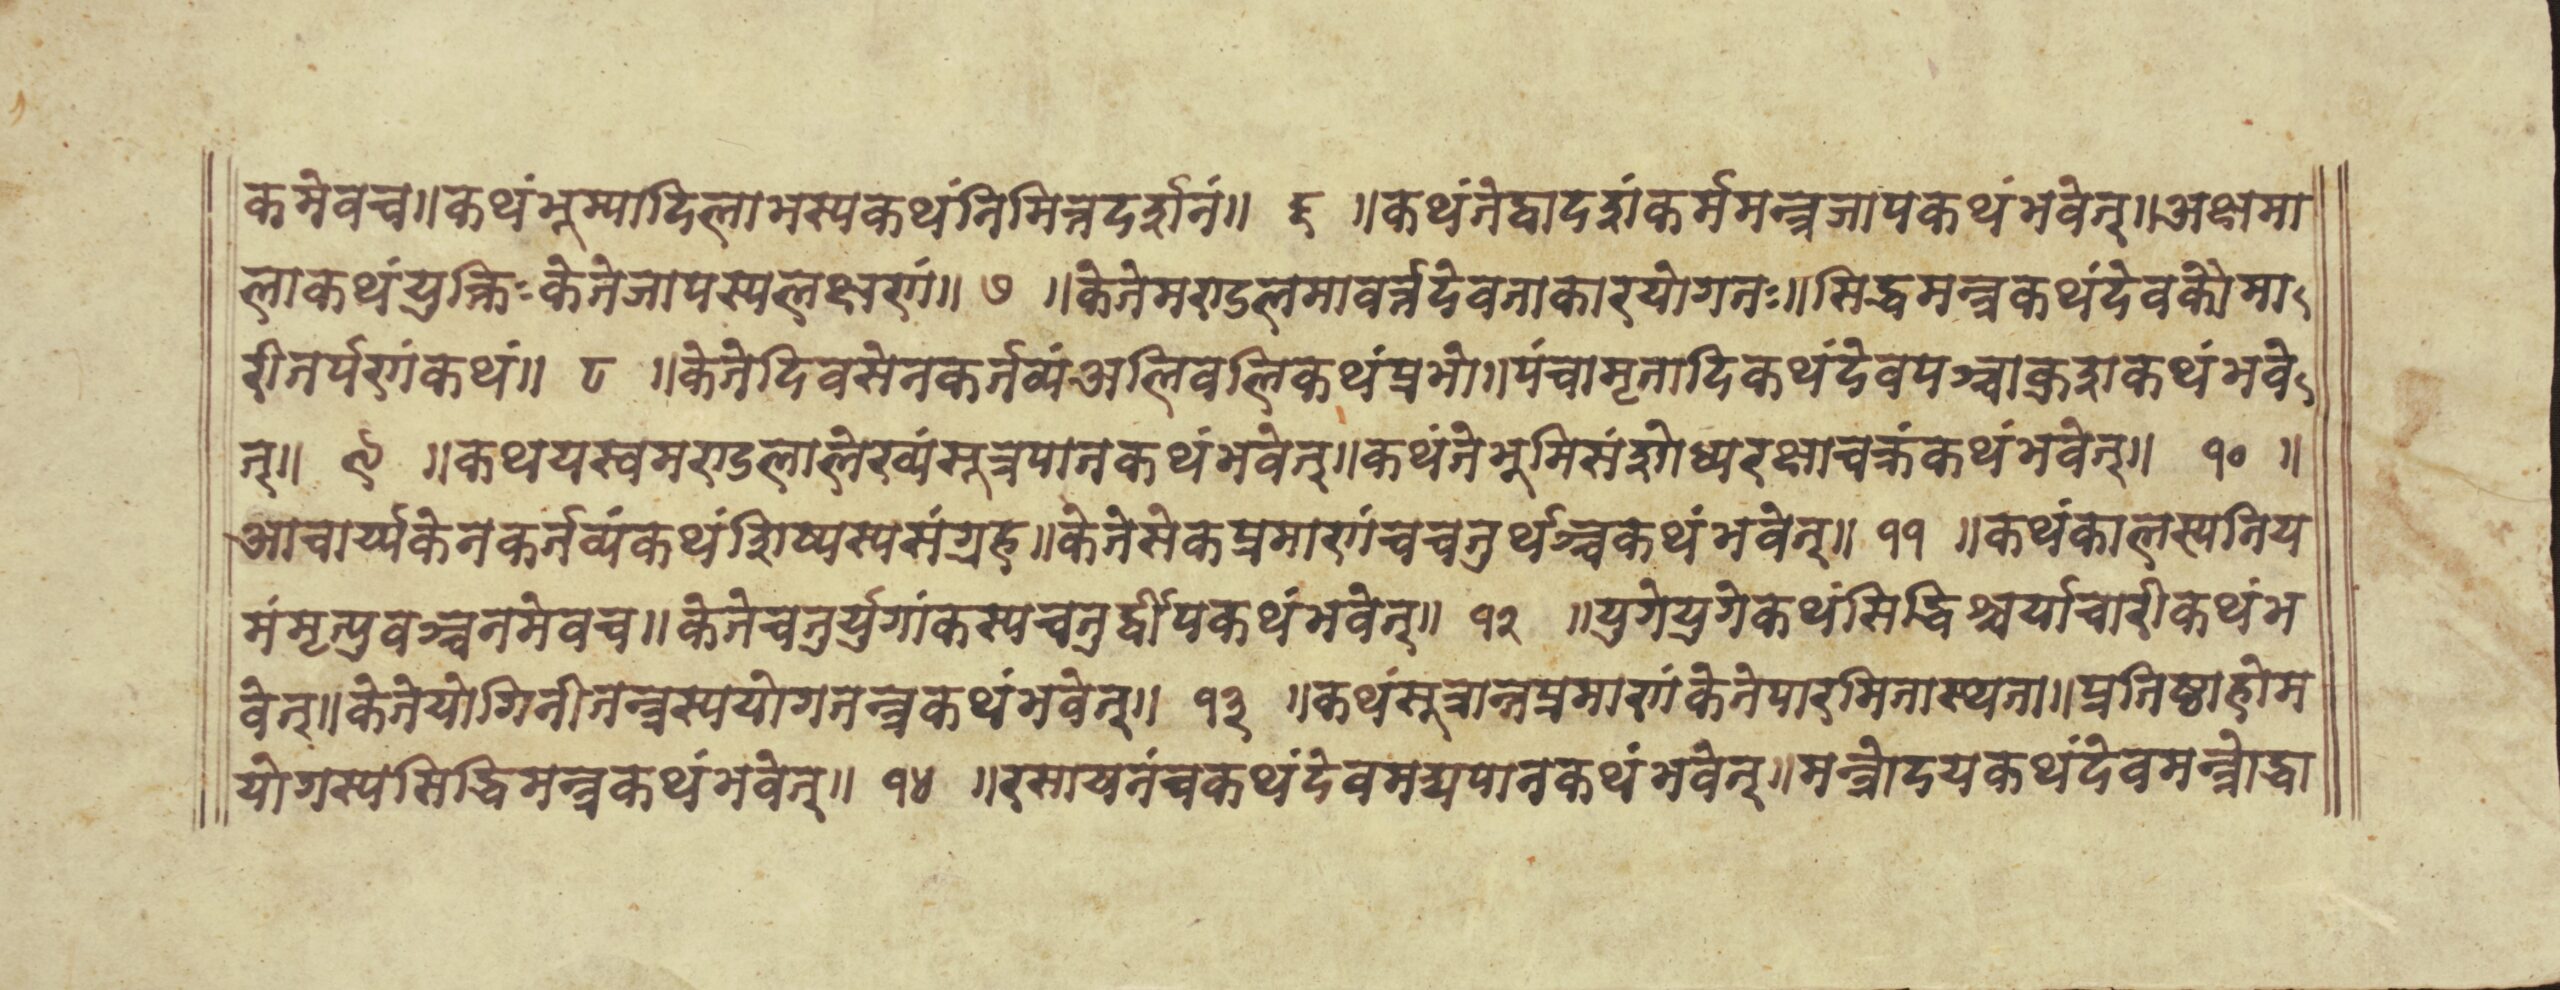 कमेवच॥कथंभूम्यादिलाभस्यकथंनिमित्तदर्शनं॥ ६ ॥कथंतेद्वादशंकर्ममन्त्रजापकथंभवेत्॥अक्षमा
लाकथंयुक्तिःकेतेजापस्यलक्षणं॥ ७ ॥केतेमण्डलमावर्त्तदेवताकारयोगतः॥सिद्धमन्त्रकथंदेवकौमा
रीतर्पणंकथं॥ ८ ॥केतेदिवसेनकर्तव्यंअलिवलिकथंप्रभो॥पंचामृतादिकथंदेवपञ्चाक्रशकथंभवे
त्॥ ९ ॥कथयस्वमण्डलालेख्यंसूत्रपातकथंभवेत्॥कथंतेभूमिसंशोध्यरक्षाचक्रंकथंभवेत्॥ १० ॥
आचार्य्यकेनकर्तव्यंकथंशिष्यस्यसंग्रह॥केतेसेकप्रमाणंचचतुर्थञ्चकथंभवेत्॥ ११ ॥कथंकालस्यनिय
मंमृत्युवञ्चनमेवच॥केतेचतुर्युगांकस्यचतुर्द्वीपकथंभवेत्॥ १२ ॥युगेयुगेकथंसिद्धिश्चर्याचारीकथंभ
वेत्॥केतेयोगिनीतन्त्रस्ययोगतन्त्रकथंभवेत्॥ १३ ॥कथंसूत्रान्तप्रमाणंकेतेपारमितास्थता॥प्रतिष्ठाहोम
योगस्यसिद्धिमन्त्रकथंभवेत्॥ १४ ॥रसायनंचकथंदेवमद्यपानकथंभवेत्॥मन्त्रोदयकथंदेवमन्त्रोद्धा